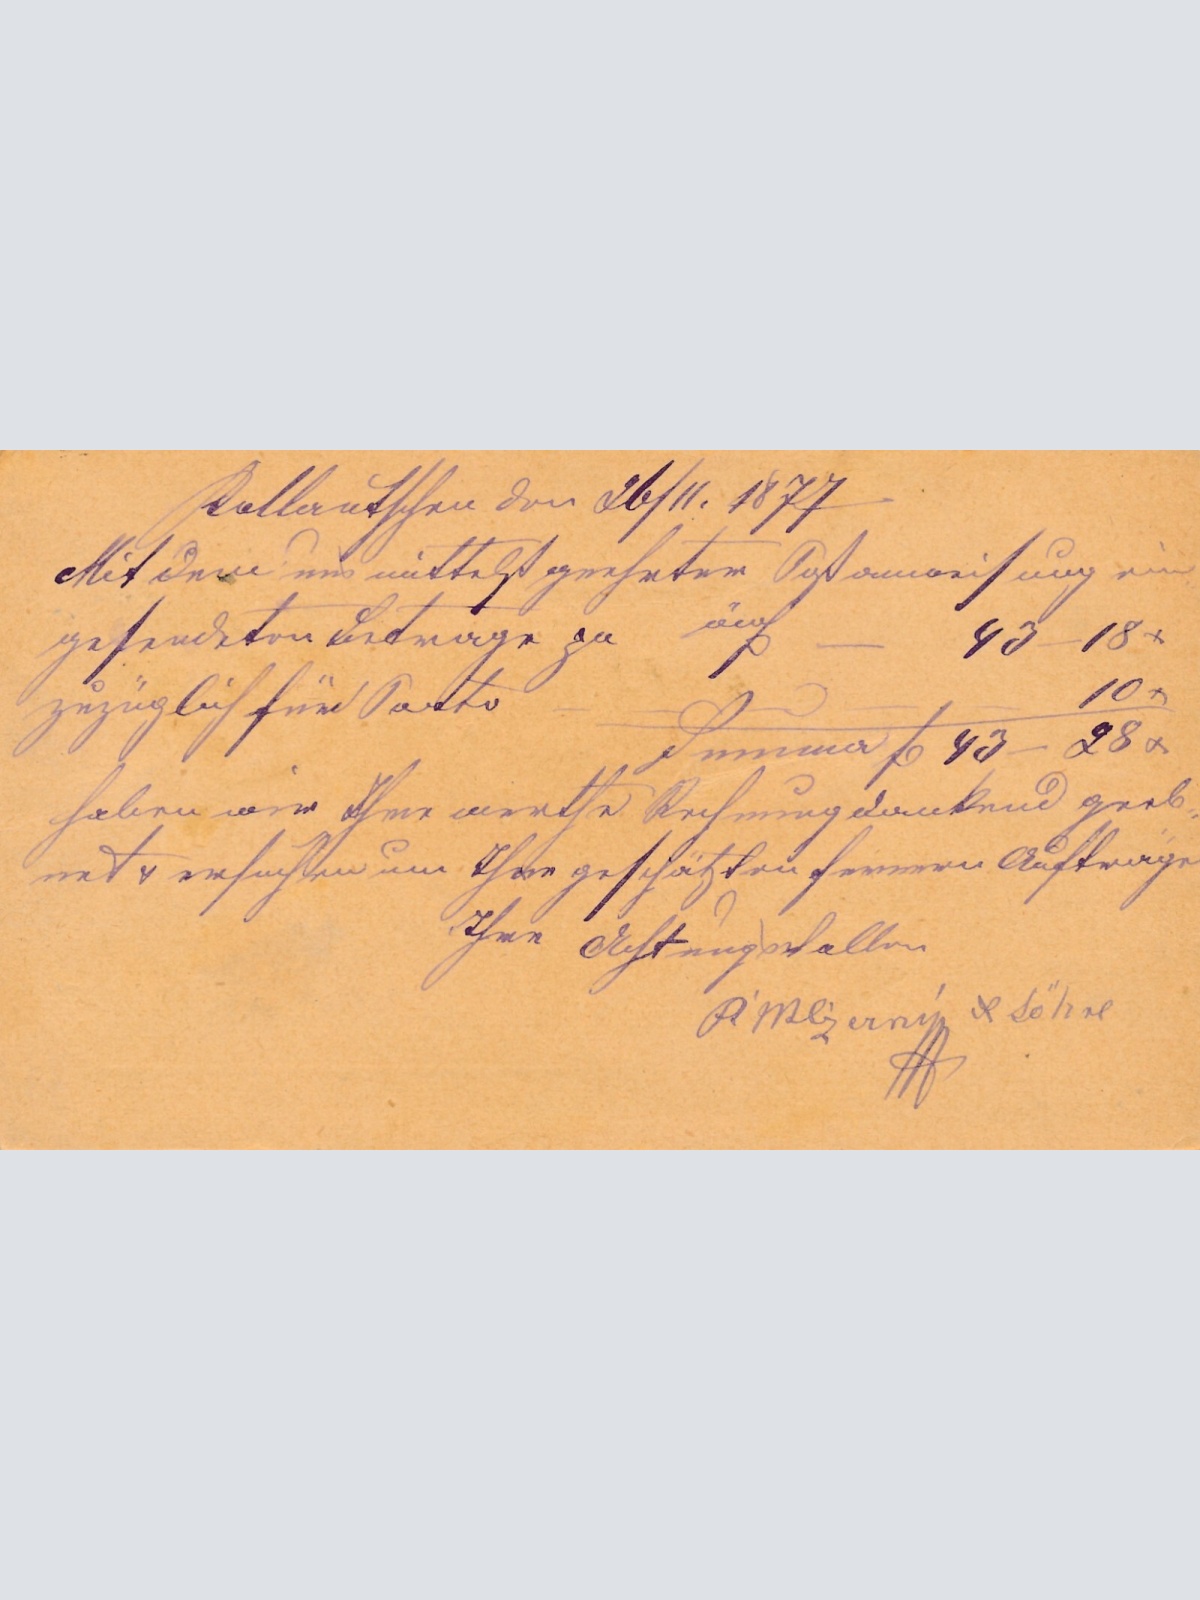 Kollautschen den 26/11. 1877
Mit dem uns mittelst geehrter Postanweisung ein
gesendeten Betrage zu — 43 – 18 x
zuzüglich für Porto — 10 x
Summa f 43 – 28 x
haben wir Ihre werthe Rechnung dankend geeb-
net & ersuchen um Ihre geschätzten fernern Aufträge
Ihre Achtungsvollen
& Söhne